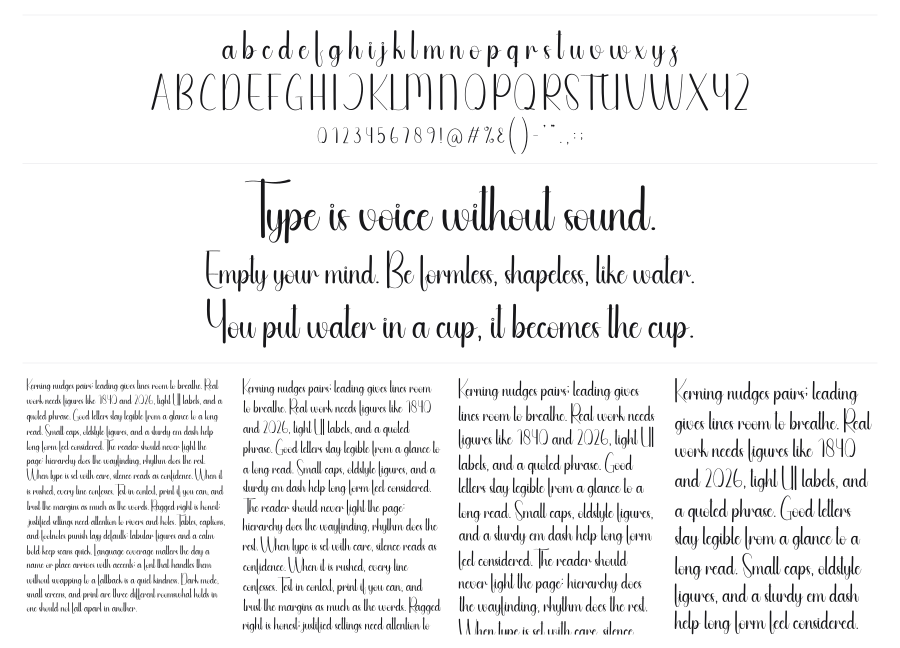 a b c d e f g h i j k l m n o p q r s t u v w x y z
ABCDEFGHIJKLMNOPQRSTUVWXYZ
0123456789!@#%&()-'".,;:
Type is voice without sound.
Empty your mind. Be formless, shapeless, like water.
You put water in a cup, it becomes the cup.
Kerning nudges pairs; leading gives lines room to breathe. Real
work needs figures like 1840 and 2026, tight UI labels, and a
quoted phrase. Good letters stay legible from a glance to a long
read. Small caps, oldstyle figures, and a sturdy em dash help
long form feel considered. The reader should never fight the
page: hierarchy does the wayfinding, rhythm does the rest.
When type is set with care, silence reads as confidence. When it
is rushed, every line confesses. Test in context, print if you can, and
trust the margins as much as the words. Ragged right is honest;
justified settings need attention to rivers and holes. Tables, captions,
and footnotes punish lazy defaults; tabular figures and a calm
bold keep scans quick. Language coverage matters the day a
name or place arrives with accents: a font that handles them
without swapping to a fallback is a quiet kindness. Dark mode,
small screens, and print are three different rooms; what holds in
one should not fall apart in another.
Kerning nudges pairs; leading gives lines room
to breathe. Real work needs figures like 1840
and 2026, tight UI labels, and a quoted
phrase. Good letters stay legible from a glance to
a long read. Small caps, oldstyle figures, and a
sturdy em dash help long form feel considered.
The reader should never fight the page:
hierarchy does the wayfinding, rhythm does the
rest. When type is set with care, silence reads as
confidence. When it is rushed, every line
confesses. Test in context, print if you can, and
trust the margins as much as the words. Ragged
right is honest; justified settings need attention to
Kerning nudges pairs; leading gives
lines room to breathe. Real work needs
figures like 1840 and 2026, tight UI
labels, and a quoted phrase. Good
letters stay legible from a glance to a
long read. Small caps, oldstyle figures,
and a sturdy em dash help long form
feel considered. The reader should
never fight the page: hierarchy does
the wayfinding, rhythm does the rest.
When type is set with care, silence
Kerning nudges pairs; leading
gives lines room to breathe. Real
work needs figures like 1840
and 2026, tight UI labels, and
a quoted phrase. Good letters
stay legible from a glance to a
long read. Small caps, oldstyle
figures, and a sturdy em dash
help long form feel considered.